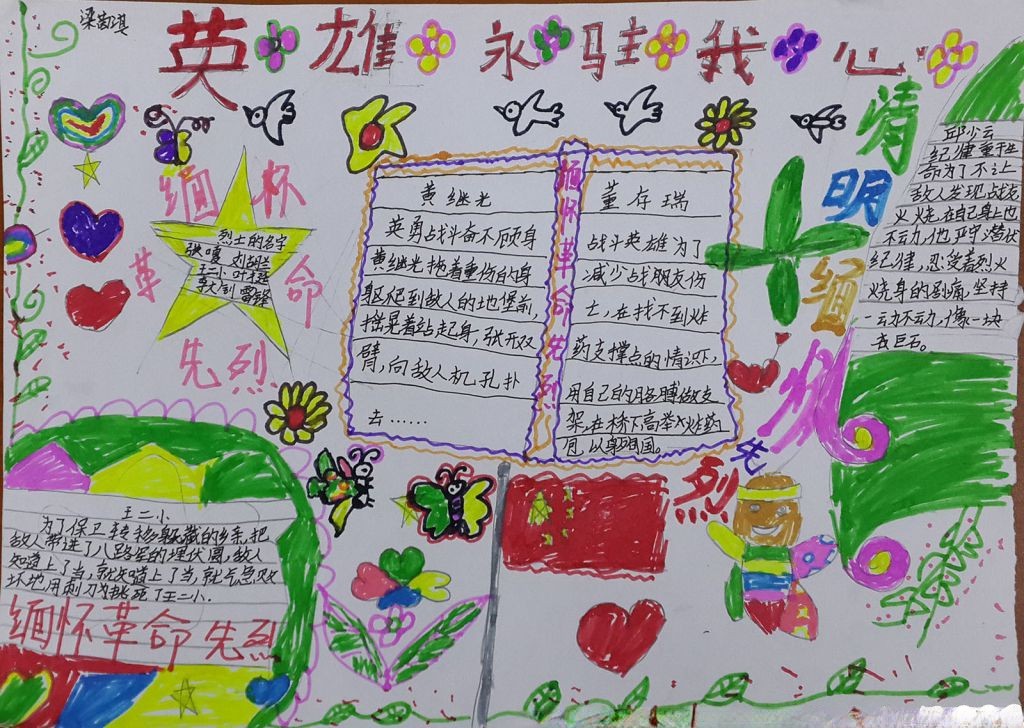 梁凯琪
英雄永驻我心
缅怀
革命
先烈
烈士的名字
张嘎 刘胡兰
王二小 叶挺
李大钊 雷锋
黄继光
英勇战斗奋不顾身
黄继光拖着重伤的身
躯爬到敌人的地堡前,
摇晃着站起身,张开双
臂,向敌人机孔扑
去……
缅怀革命先烈
董存瑞
战斗英雄为了
减少战朋友伤
亡,在找不到炸
药支撑点的情识下,
用自己的胳膊做支
架,在桥下高举炸药
包,以身殉国。
清明缅怀先烈
邱少云
纪律重于生
命为了不让
敌人发现战友
火烧,在自己身上也
不动,他严守潜伏
纪律,忍受着烈火
烧身的剧痛,坚持
一动不动,像一块
巨石。
王二小
为了保卫转移躲藏的乡亲,把
敌人带进了八路军的埋伏圈,敌人
知道上了当,就知道上了当,就气急败
坏地用刺刀挑死了王二小.
缅怀革命先烈